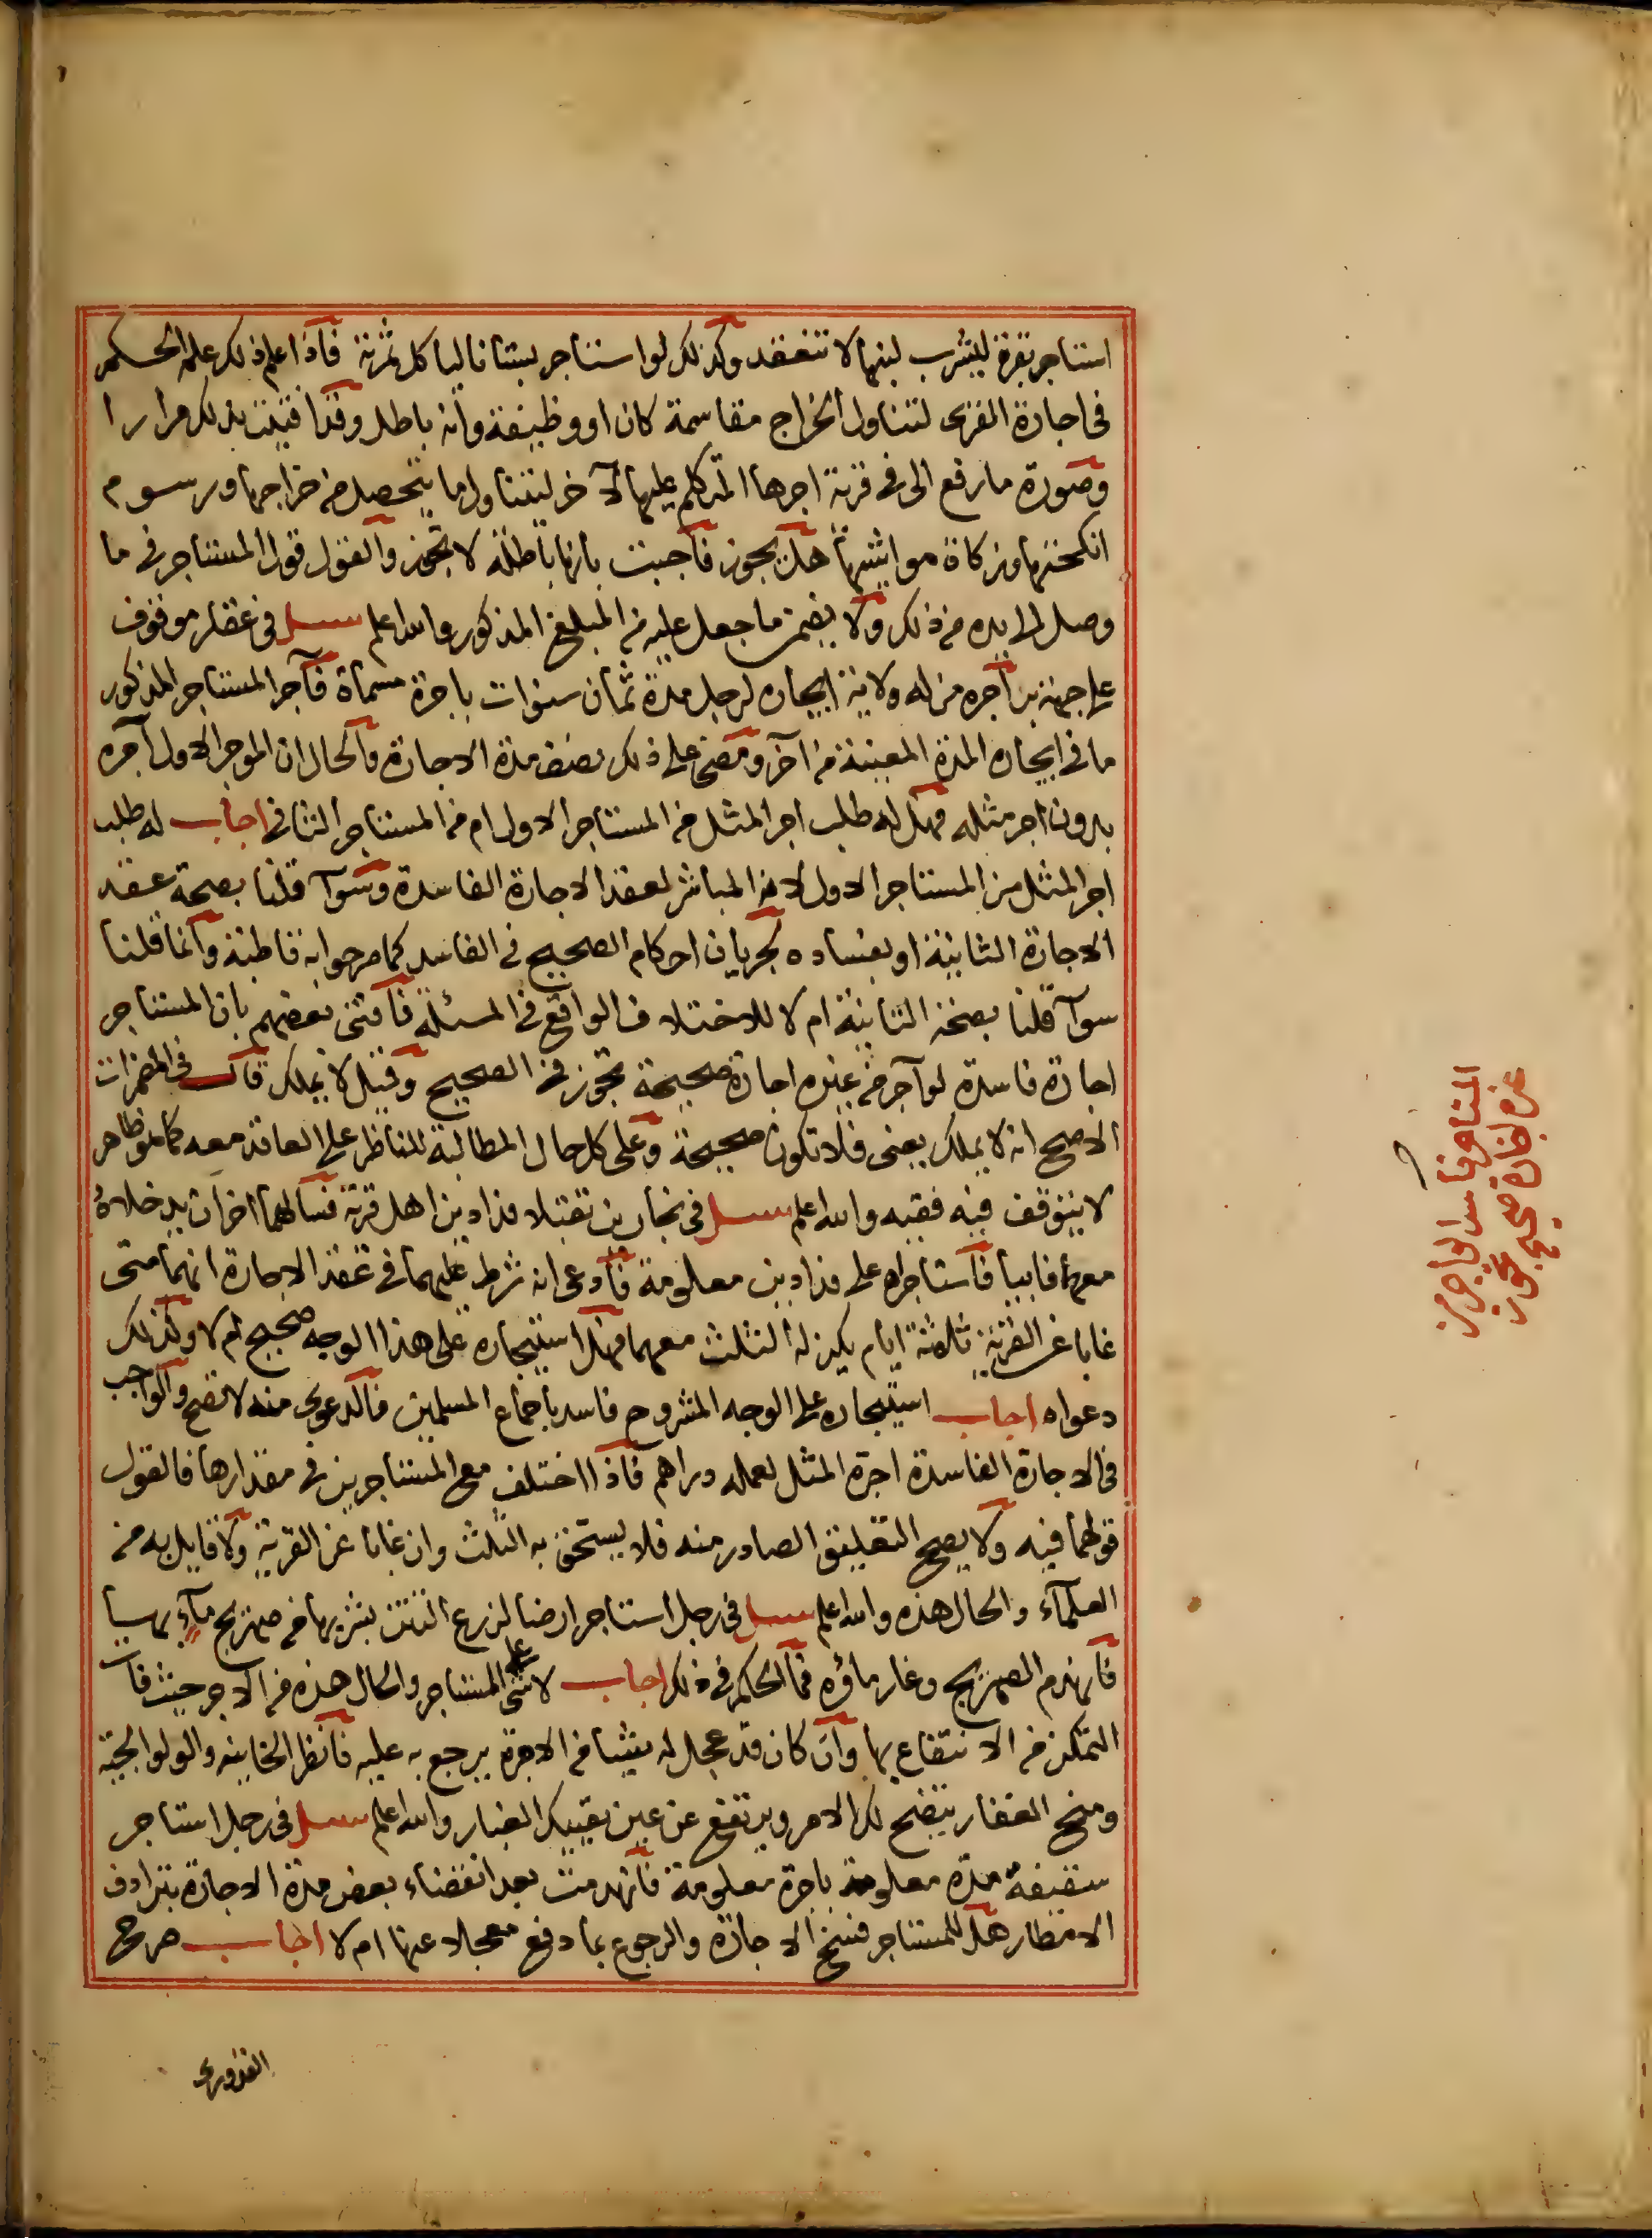 استاجر بقرة ليشرب لبنها لا تنعقد وكذلك لو استاجر بستانا لياكل ثمرته فاذا علم ذلك علم الحكم
في اجارة القرى لتناول الخراج مقاسمة كان او وظيفة وانه باطل وقد افتيت بذلك مرارا
وصورة ما رفع الى في قرية اجرها المتكلم عليها لاخر ليتناول ما يتحصل من خراجها ورسوم
انكحتها وزكاة مواشيها هل يجوز فاجبت بانها باطلة لا تجوز والقول قول المستاجر في ما
وصل الى يده من ذلك ولا يضمن ما جعل عليه من المبلغ المذكور والله اعلم سئل في عقار موقوف
على جهة بر آجره من له ولاية ايجاره لرجل مدة ثمان سنوات باجرة مسماة فآجر المستاجر المذكور
ما في ايجاره المدة المعينة من آخر ومضى على ذلك نصف مدة الاجارة والحال ان الموجر الاول آجره
بدون اجر مثله فهل له طلب اجر المثل من المستاجر الاول ام من المستاجر الثاني اجاب له طلب
اجر المثل من المستاجر الاول لانه المباشر لعقد الاجارة الفاسدة وسوآ قلنا بصحة عقد
الاجارة الثانية او بفساده لجريان احكام الصحيح في الفاسد كما صرحوا به قاطبة وانما قلنا
سوآ قلنا بصحة الثانية ام لا للاختلاف الواقع في المسئلة فافتى بعضهم بان المستاجر
اجارة فاسدة لو آجر من غيره اجارة صحيحة تجوز في الصحيح وقيل لا يملك قال في المضمرات
الاصح انه لا يملك يعنى فلا تكون صحيحة وعلى كل حال المطالبة للناظر على العاقد معه كما هو ظاهر
لا يتوقف فيه فقيه والله اعلم سئل في نجارين تقبلا فدادين اهل قرية فسالهما اخر ان يدخلاه
معهما فابيا فاستاجراه على فدادين معلومة فادعى انه شرط عليهما في عقد الاجارة انهما متى
غابا عن القرية ثلاثة ايام يكن له الثلث معهما فهل استيجاره على هذا الوجه صحيح ام لا وكذلك
دعواه اجاب استيجاره على الوجه المشروح فاسد باجماع المسلمين فالدعوى منه لا تصح والواجب
في الاجارة الفاسدة اجرة المثل لعمله دراهم فاذا اختلف مع المستاجرين في مقدارها فالقول
قولهما فيه ولا يصح التعليق الصادر منه فلا يستحق به الثلث وان غابا عن القرية ولا قايل به من
العلمآء والحال هذه والله اعلم سئل في رجل استاجر ارضا لزرع التتن بشربها من صهريج مآء بها
فانهدم الصهريج وغار ماؤه فما الحكم في ذلك اجاب لا شئ على المستاجر والحال هذه من الاجر حيث فات
التمكن من الانتفاع بها وان كان قد عجل له شيئا من الاجرة يرجع به عليه فانظر الخانية والولوالجية
ومنح الغفار يتضح لك الامر ويرتفع عن عين يقينك الغبار والله اعلم سئل في رجل استاجر
سقيفة مدة معلومة باجرة معلومة فانهدمت بعد انقضاء بعض مدة الاجارة بترادف
الامطار هل للمستاجر فسخ الاجارة والرجوع بما دفع معجلا عنها ام لا اجاب صرح
القدورى
المستاجر فاسدا لو اجر من
غيره اجارة صحيحة تجوز